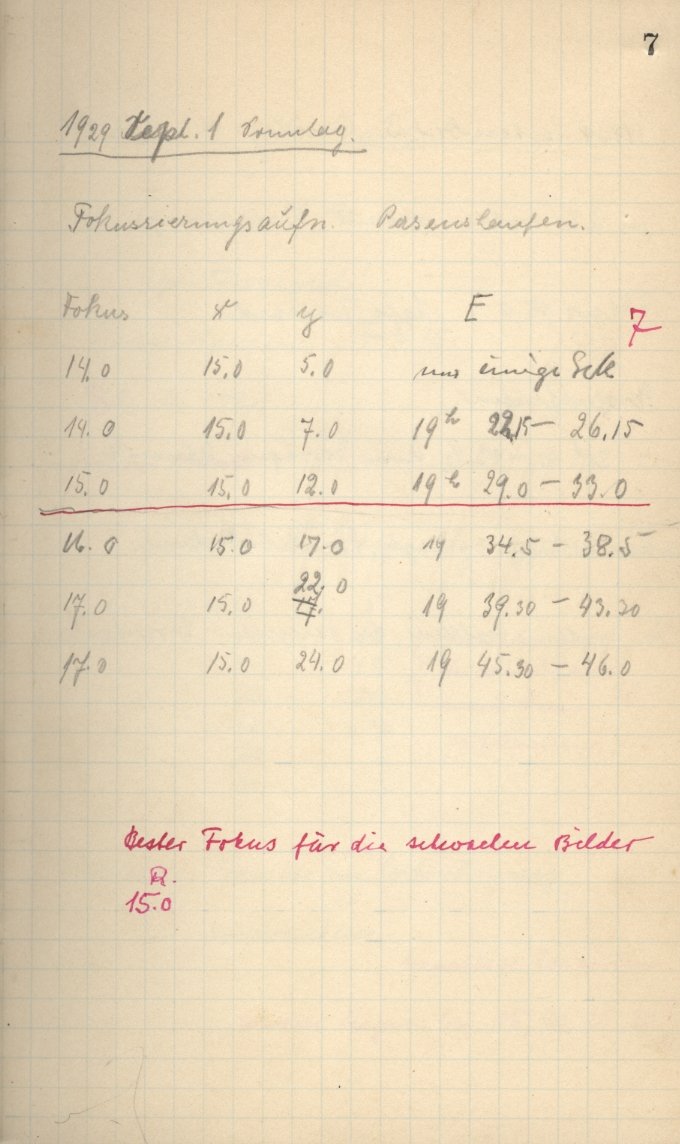 7
1929 Sept. 1 Sonntag.
Fokussierungsaufn.
Fokus x y E
7
14.0 15.0 5.0 nur einige Sek
14.0 15.0 7.0 19h 22.15 — 26.15
15.0 15.0 12.0 19h 29.0 — 33.0
16.0 15.0 17.0 19 34.5 — 38.5
22.0
17.0 15.0 19 39.30 — 43.30
17.0 15.0 24.0 19 45.30 — 46.0
Bester Fokus für die schwachen Bilder
R.
15.0